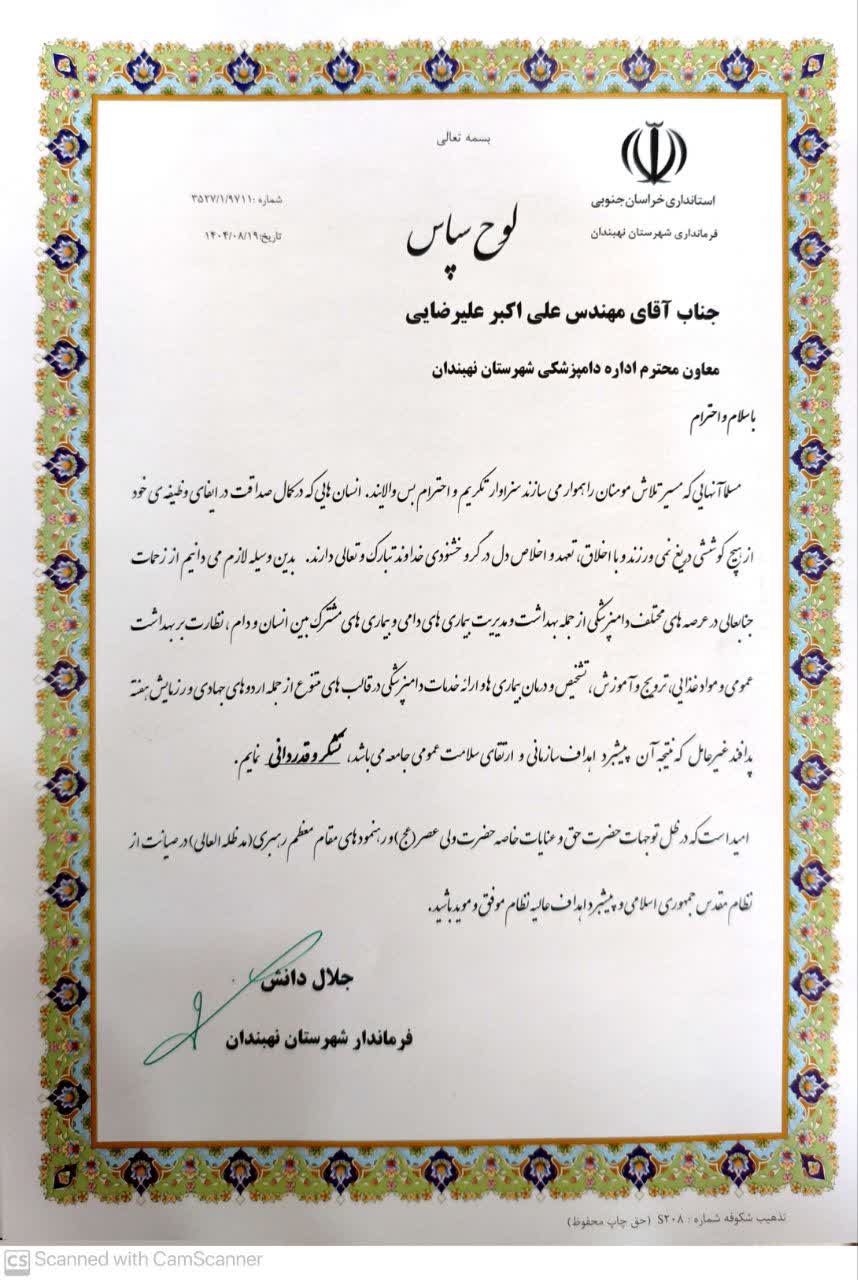 بسمه تعالی
استانداری خراسان جنوبی
فرمانداری شهرستان نهبندان
شماره :۳۵۲۷/۱/۹۷۱۱
تاریخ:۱۴۰۴/۰۸/۱۹
لوح سپاس
جناب آقای مهندس علی اکبر علیرضایی
معاون محترم اداره دامپزشکی شهرستان نهبندان
باسلام و احترام
مسلما آنهایی که مسیر تلاش مومنان را هموار می سازند سزاوار تکریم و احترام بس والایند. انسان هایی که در کمال صداقت در ایفای وظیفه ی خود
از هیچ کوششی دریغ نمی ورزند و با اخلاق، تعهد و اخلاص دل در گرو خشنودی خداوند تبارک و تعالی دارند. بدین وسیله لازم می دانیم از زحمات
جنابعالی در عرصه های مختلف دامپزشکی از جمله بهداشت و مدیریت بیماری های دامی و بیماری های مشترک بین انسان و دام ، نظارت بر بهداشت
عمومی و مواد غذایی، ترویج و آموزش، تشخیص و درمان بیماری ها و ارائه خدمات دامپزشکی در قالب های متنوع از جمله اردوهای جهادی و رزمایش هفته
پدافند غیرعامل که نتیجه آن پیشبرد اهداف سازمانی و ارتقای سلامت عمومی جامعه می باشد، تشکر و قدردانی نمایم.
امید است که در ظل توجهات حضرت حق و عنایات خاصه حضرت ولی عصر(عج) و رهنمودهای مقام معظم رهبری(مدظله العالی) در صیانت از
نظام مقدس جمهوری اسلامی و پیشبرد اهداف عالیه نظام موفق و موید باشید.
جلال دانش
فرماندار شهرستان نهبندان
تذهیب شکوفه شماره : S۲۰۸ (حق چاپ محفوظ)
CS Scanned with CamScanner